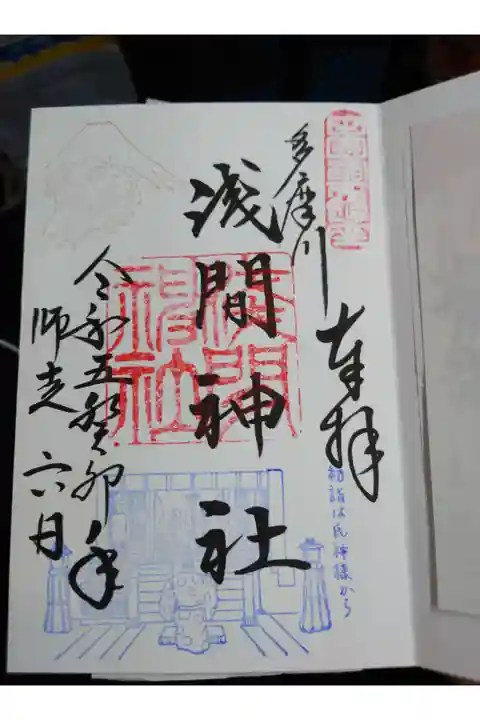 多摩川
奉拝
浅間神社
淺間神社
令和五癸卯年
師走 六日
初詣は氏神様から